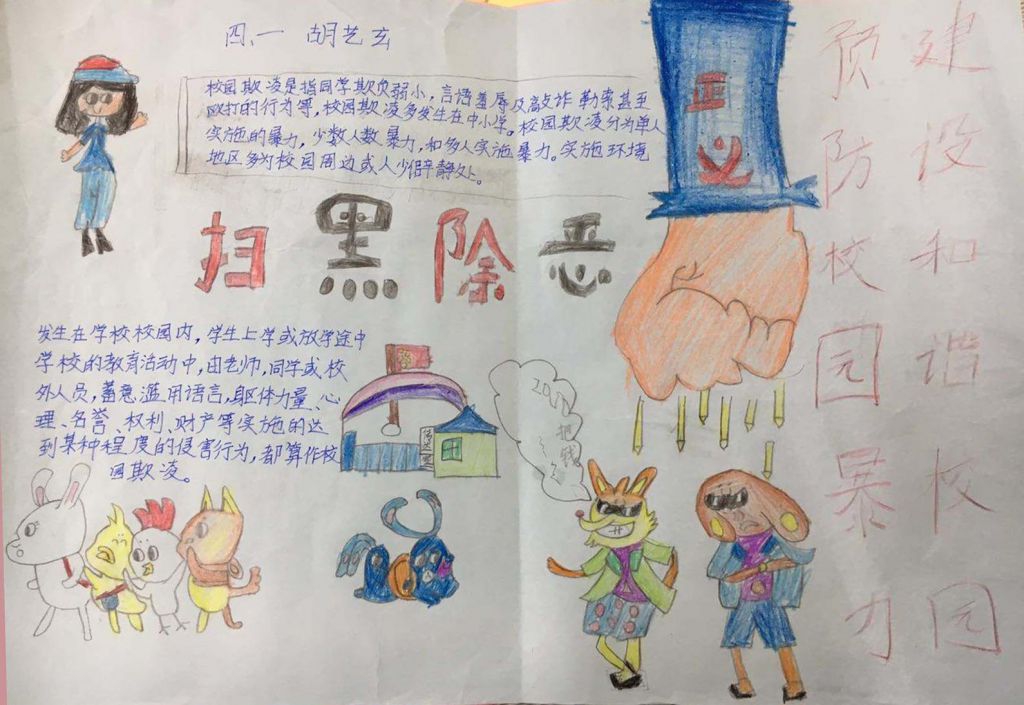 四、一 胡艺玄
校园欺凌是指同学欺负弱小，言语羞辱及敲诈勒索甚至
殴打的行为等，校园欺凌多发生在中小学。校园欺凌分为单人
实施的暴力，少数人数暴力，和多人实施暴力。实施环境
地区多为校园周边或人少僻静处。
正义
扫黑除恶
发生在学校校园内，学生上学或放学途中
学校的教育活动中，由老师，同学或校
外人员，蓄意滥用语言，躯体力量、心
理、名誉、权利、财产等实施的达
到某种程度的侵害行为，都算作校
园欺凌。
把钱
建设和谐校园
预防校园暴力